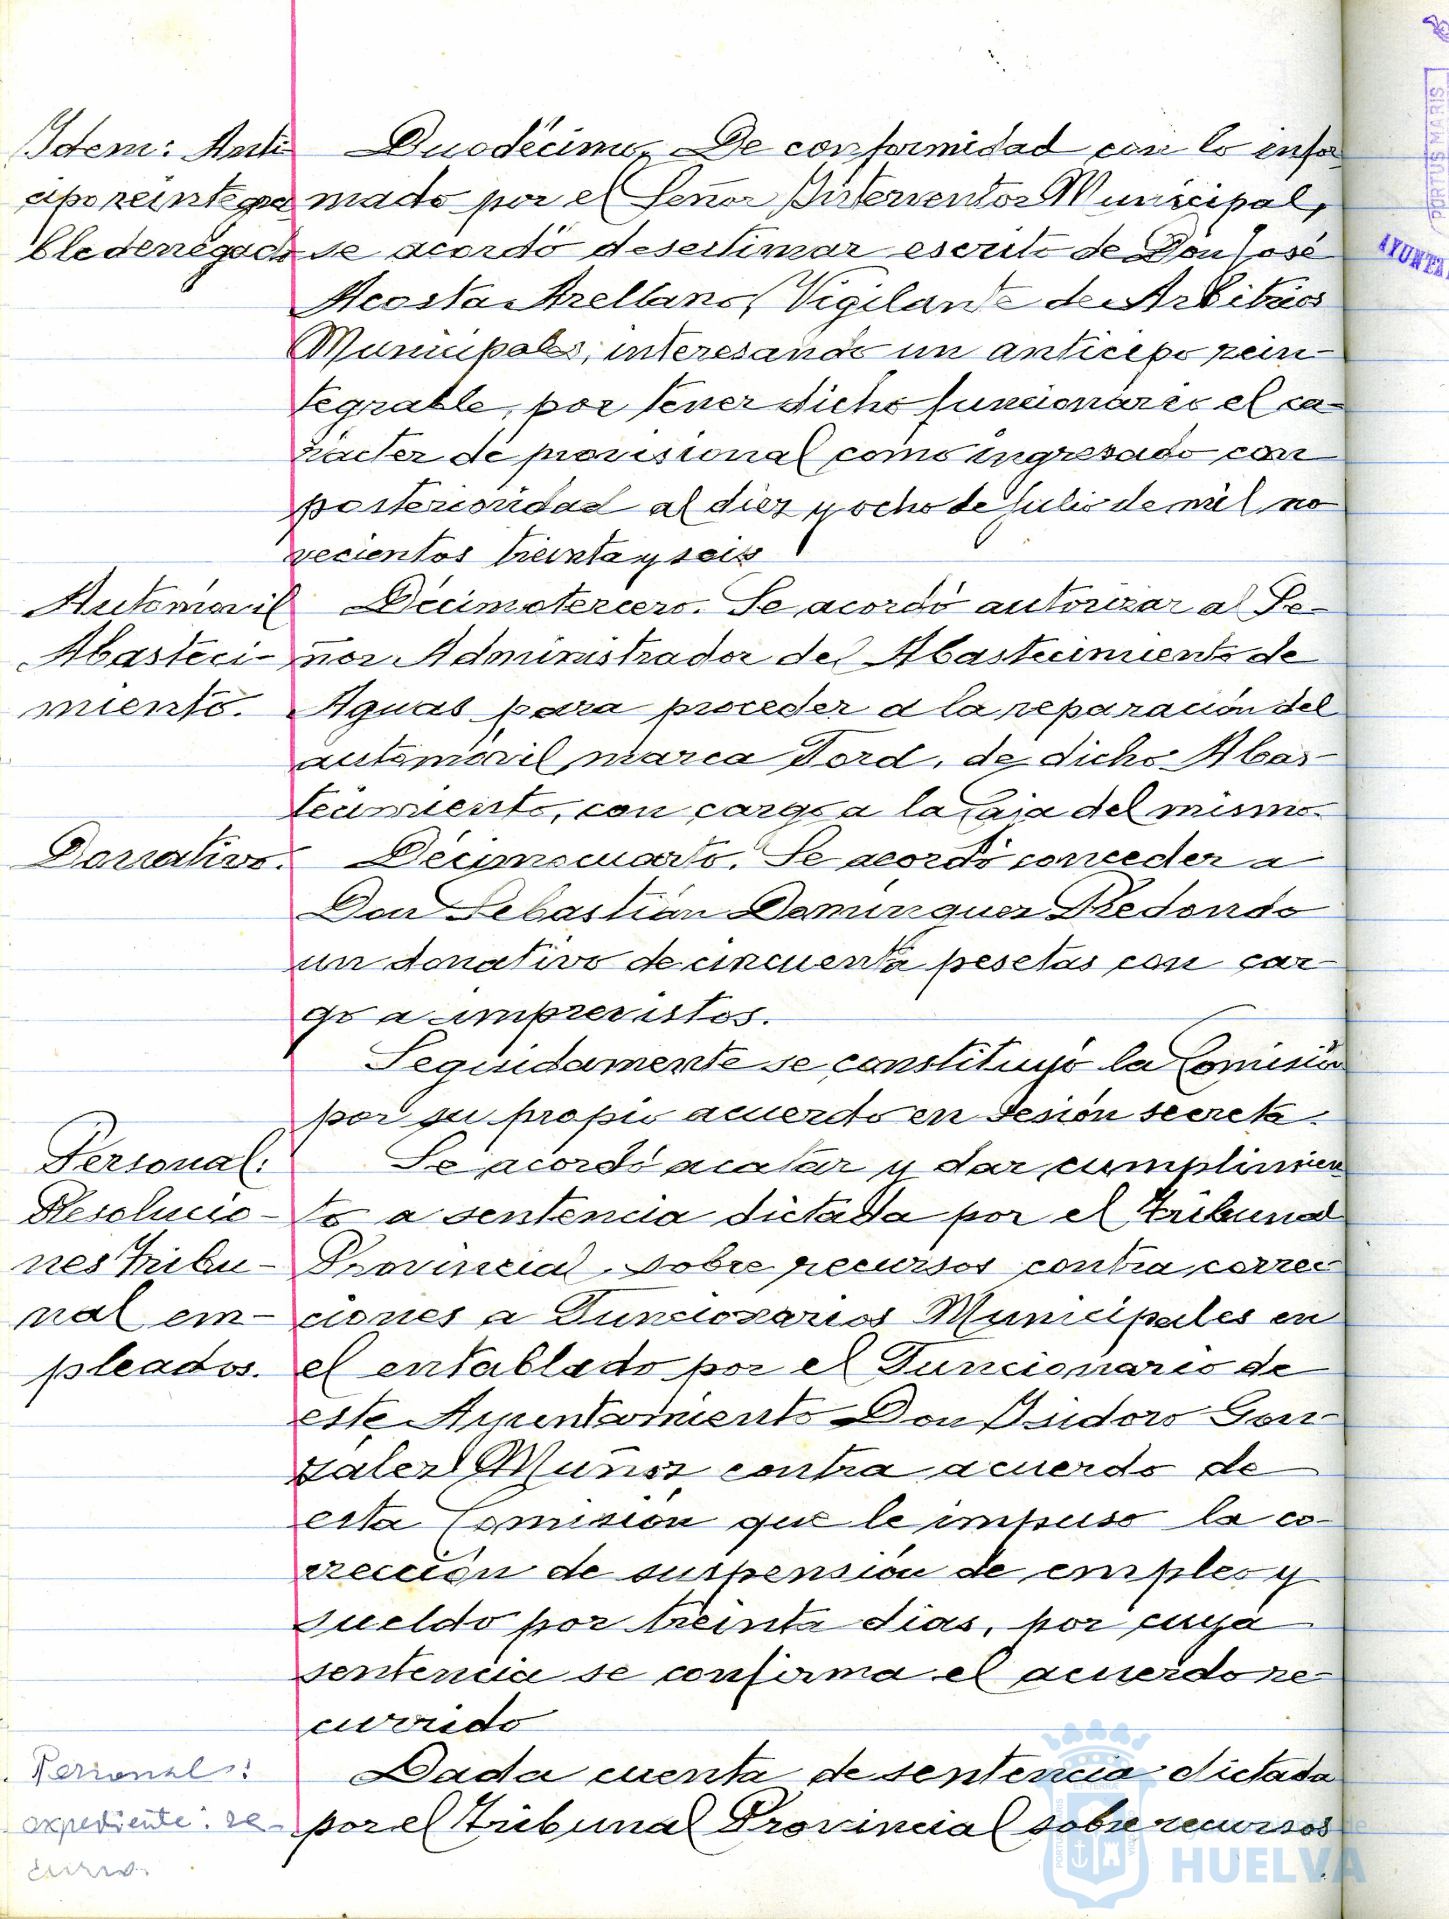 Idem: Anti-
cipo reintegra
ble denegado
Duodécimo, De conformidad con lo infor
mado por el Señor Interventor Municipal,
se acordó desestimar escrito de Don José
Acosta Arellano, Vigilante de Arbitrios
Municipales, interesando un anticipo rein-
tegrable, por tener dicho funcionario el ca-
rácter de provisional como ingresado con
posterioridad al diez y ocho de Julio de mil no
vecientos treinta y seis
Automóvil
Abasteci-
miento.
Décimotercero. Se acordó autorizar al Se-
ñor Administrador del Abastecimiento de
Aguas para proceder a la reparación del
automóvil marca Ford, de dicho Abas-
tecimiento, con cargo a la Caja del mismo.
Donativo.
Décimocuarto. Se acordó conceder a
Don Sebastián Domínguez Redondo
un donativo de cincuenta pesetas con car-
go a imprevistos.
Seguidamente se constituyó la Comisión
por su propio acuerdo en sesión secreta.
Personal:
Resolucio-
nes Tribu-
nal em-
pleados.
Se acordó acatar y dar cumplimien
to a sentencia dictada por el Tribunal
Provincial, sobre recursos contra correc-
ciones a Funcionarios Municipales en
el entablado por el Funcionario de
este Ayuntamiento Don Isidoro Gon-
zález Muñoz contra acuerdo de
esta Comisión que le impuso la co-
rrección de suspensión de empleo y
sueldo por treinta días, por cuya
sentencia se confirma el acuerdo re-
currido
Personal:
expediente: re-
curso.
Dada cuenta de sentencia dictada
por el Tribunal Provincial sobre recursos
PORTUS MARIS
AYUNTA
HUELVA